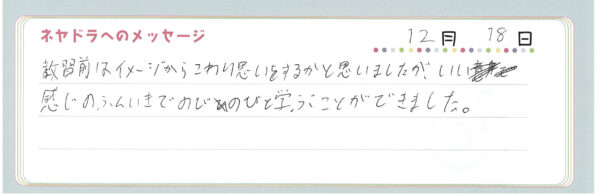 ネヤドラへのメッセージ 12月 18日
教習前はイメージからこわい思いをするかと思いましたが、いい
感じのふんいきでのびのびと学ぶことができました。